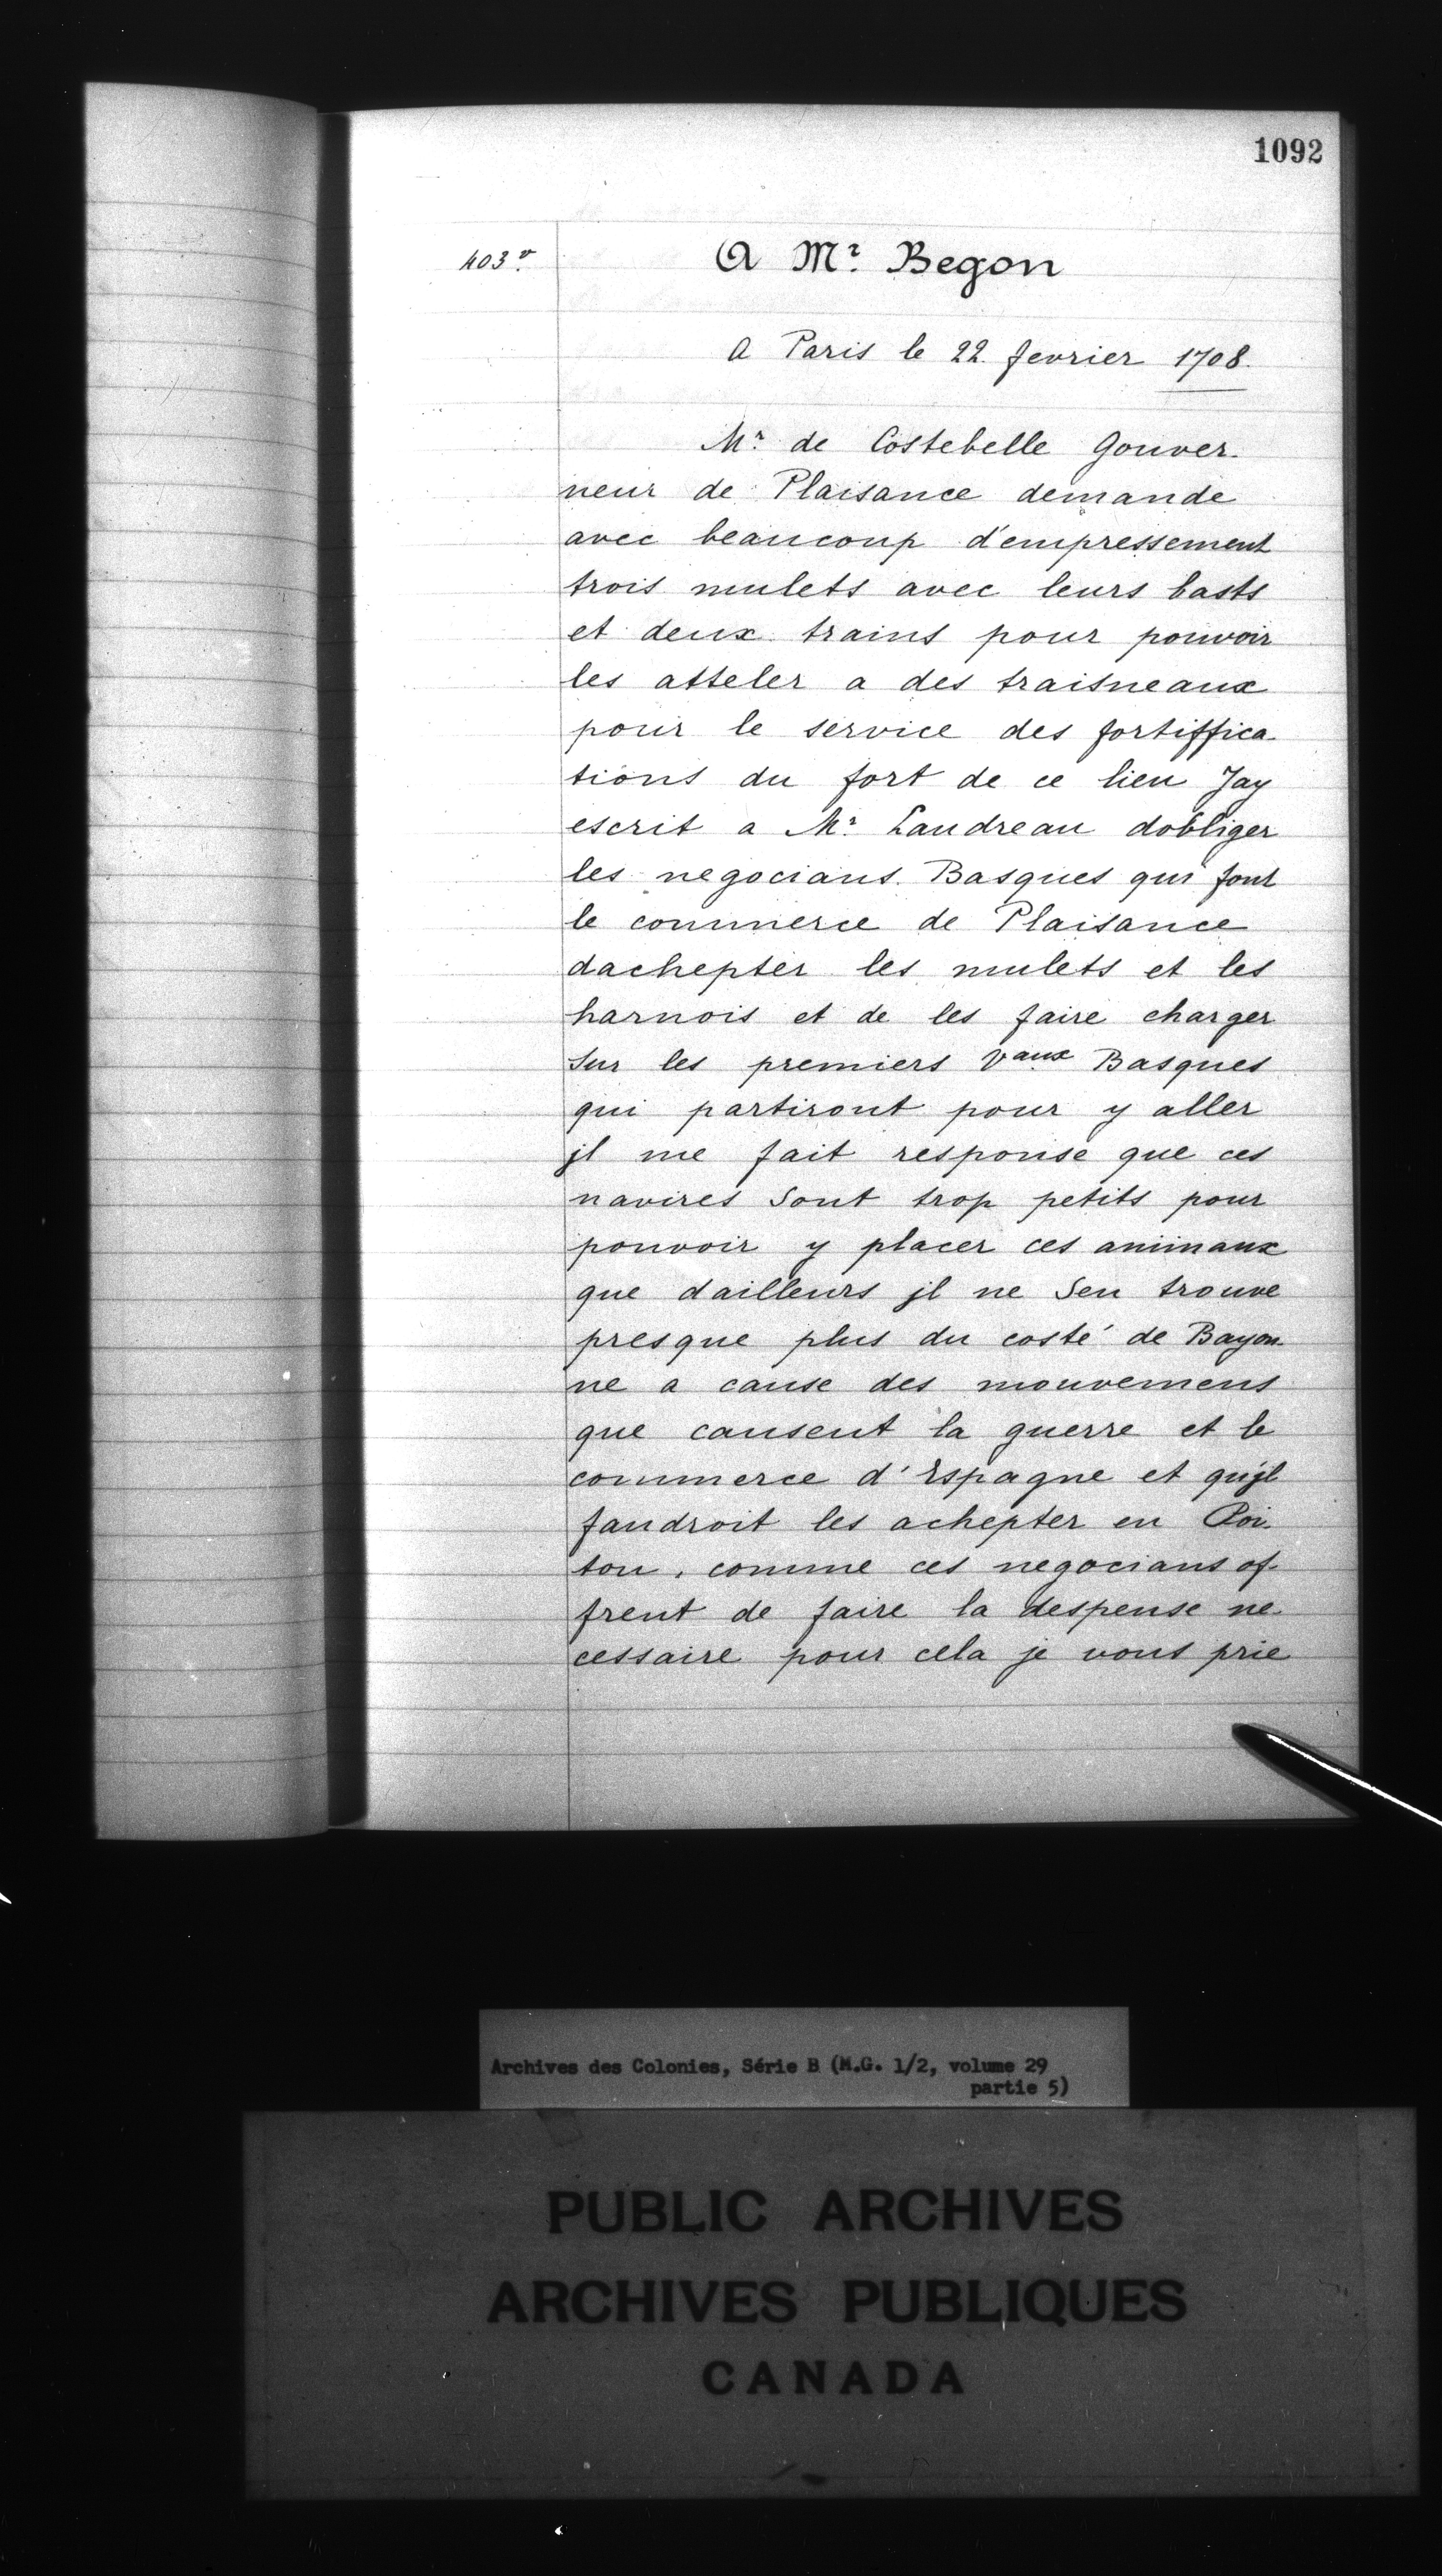 1092
403 v.
A Mr. Begon
A Paris le 22 fevrier 1708.
Mr. de Costebelle Gouver-
neur de Plaisance demande
avec beaucoup d'empressement
trois mulets avec leurs basts
et deux trains pour pouvoir
les atteler a des traisneaux
pour le service des fortiffica-
tions du fort de ce lieu Jay
escrit a Mr. Landreau dobliger
les negocians Basques qui font
le commerce de Plaisance
dachepter les mulets et les
harnois et de les faire charger
sur les premiers Vaux Basques
qui partiront pour y aller
jl me fait response que ces
navires sont trop petits pour
pouvoir y placer ces animaux
que dailleurs jl ne sen trouve
presque plus du costé de Bayon-
ne a cause des mouvemens
que causent la guerre et le
commerce d'Espagne et qujl
faudroit les achepter en Poi-
tou, comme ces negocians of-
frent de faire la despense ne-
cessaire pour cela je vous prie
Archives des Colonies, Série B (M.G. 1/2, volume 29
partie 5)
PUBLIC ARCHIVES
ARCHIVES PUBLIQUES
CANADA